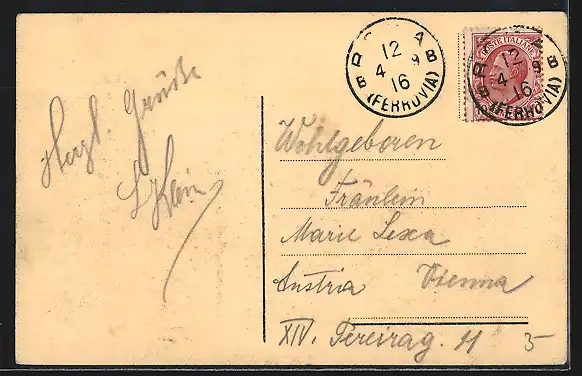 Herzl. Grüße
L Klein
POSTE ITALIANE
12
4 9
16
(FERROVIA)
12
4 9
16
(FERROVIA)
Wohlgeboren
Fräulein
Marie Lexa
Austria Vienna
XIV. Pereirag. 11 5-